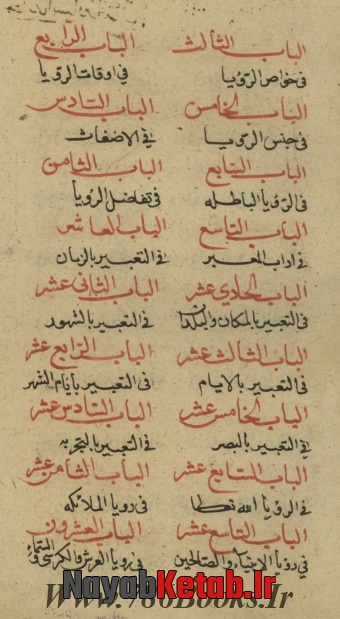 الباب الثالث الباب الرابع
في خواص الرؤيا في اوقات الرؤيا
الباب الخامس الباب السادس
في جنس الرؤيا في الاضغاث
الباب السابع الباب الثامن
في الرؤيا الباطله في تفاضل الرؤيا
الباب التاسع الباب العاشر
في اداب المعبر في التعبير بالزمان
الباب الحادي عشر الباب الثاني عشر
في التعبير بالمكان والبلدان في التعبير بالشهور
الباب الثالث عشر الباب الرابع عشر
في التعبير بالايام في التعبير بأيام الشهر
الباب الخامس عشر الباب السادس عشر
في التعبير بالبصر في التعبير بالتجربه
الباب السابع عشر الباب الثامن عشر
في الرؤيا الله تعالى في رويا الملائكه
الباب التاسع عشر الباب العشرون
في رويا الانبياء والصالحين في رويا العرش والكرسي
NayabKetab.Ir
www.786Books.Ir